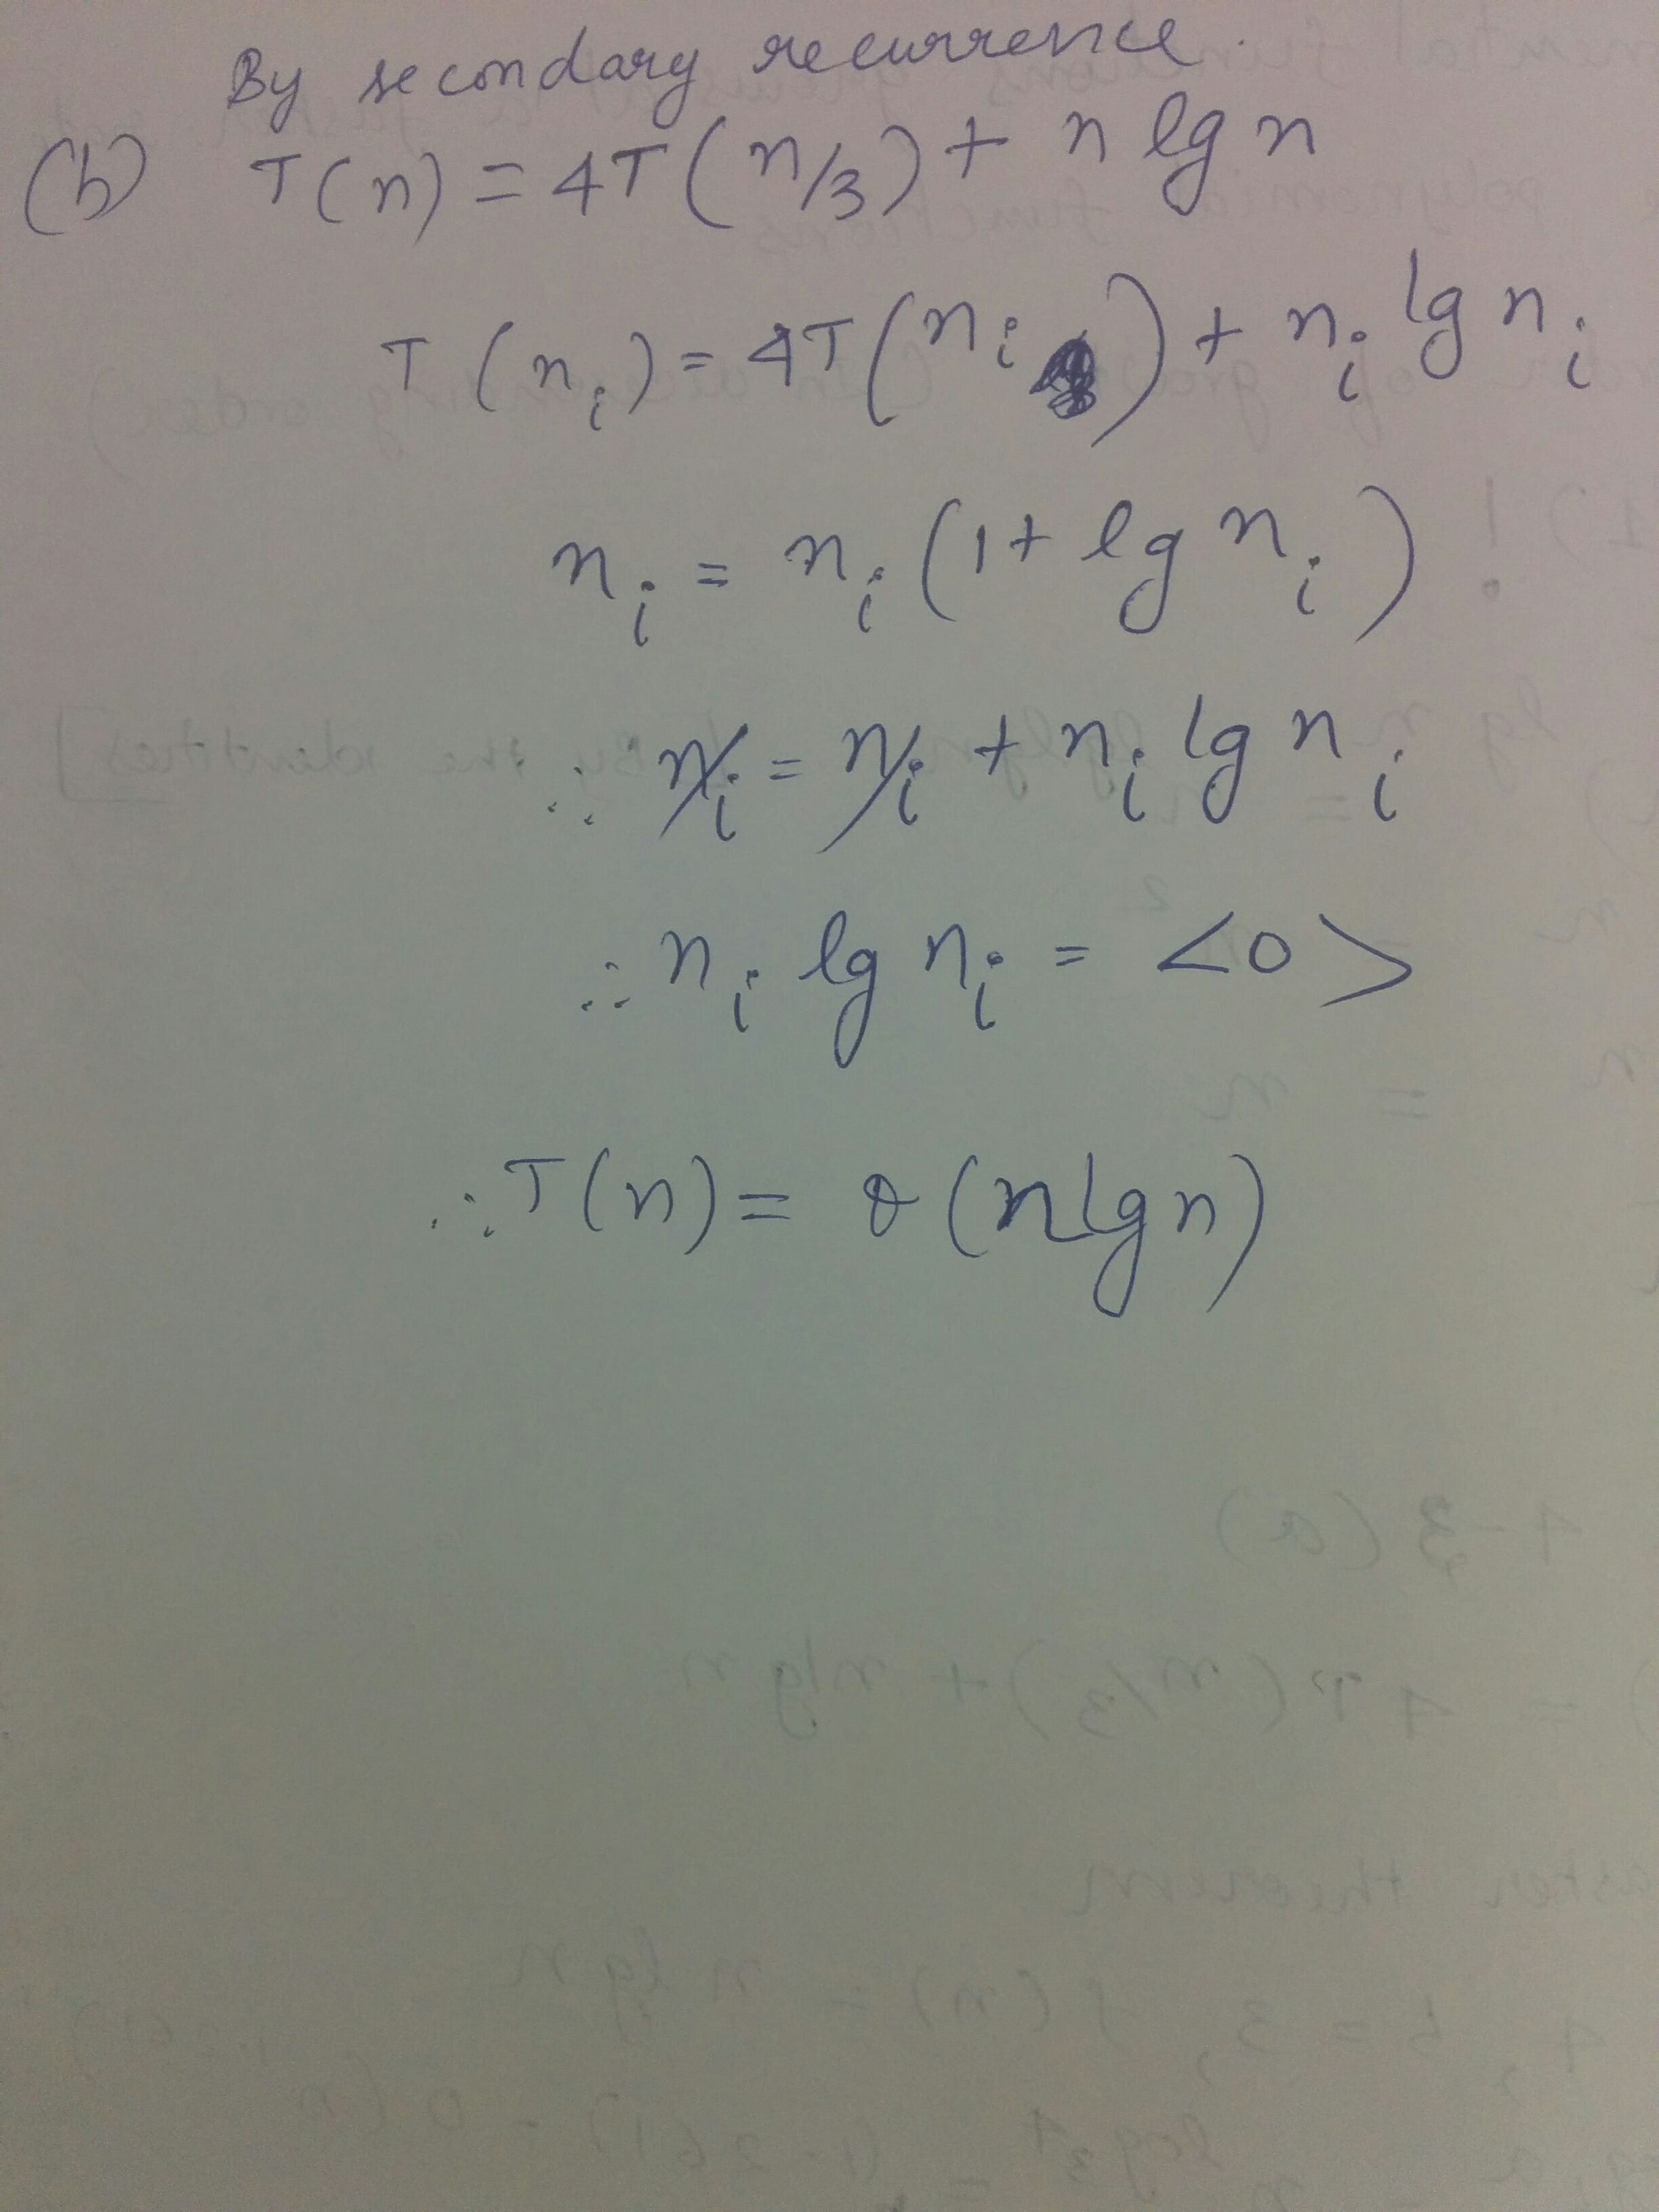 By secondary recurrence.
(b) T(n) = 4T(n/3) + n lg n
T(nᵢ) = 4T(nᵢ) + nᵢ lg nᵢ
nᵢ = nᵢ (1 + lg nᵢ)
∴ nᵢ = nᵢ + nᵢ lg nᵢ
∴ nᵢ lg nᵢ = <0>
∴ T(n) = θ(n lg n)